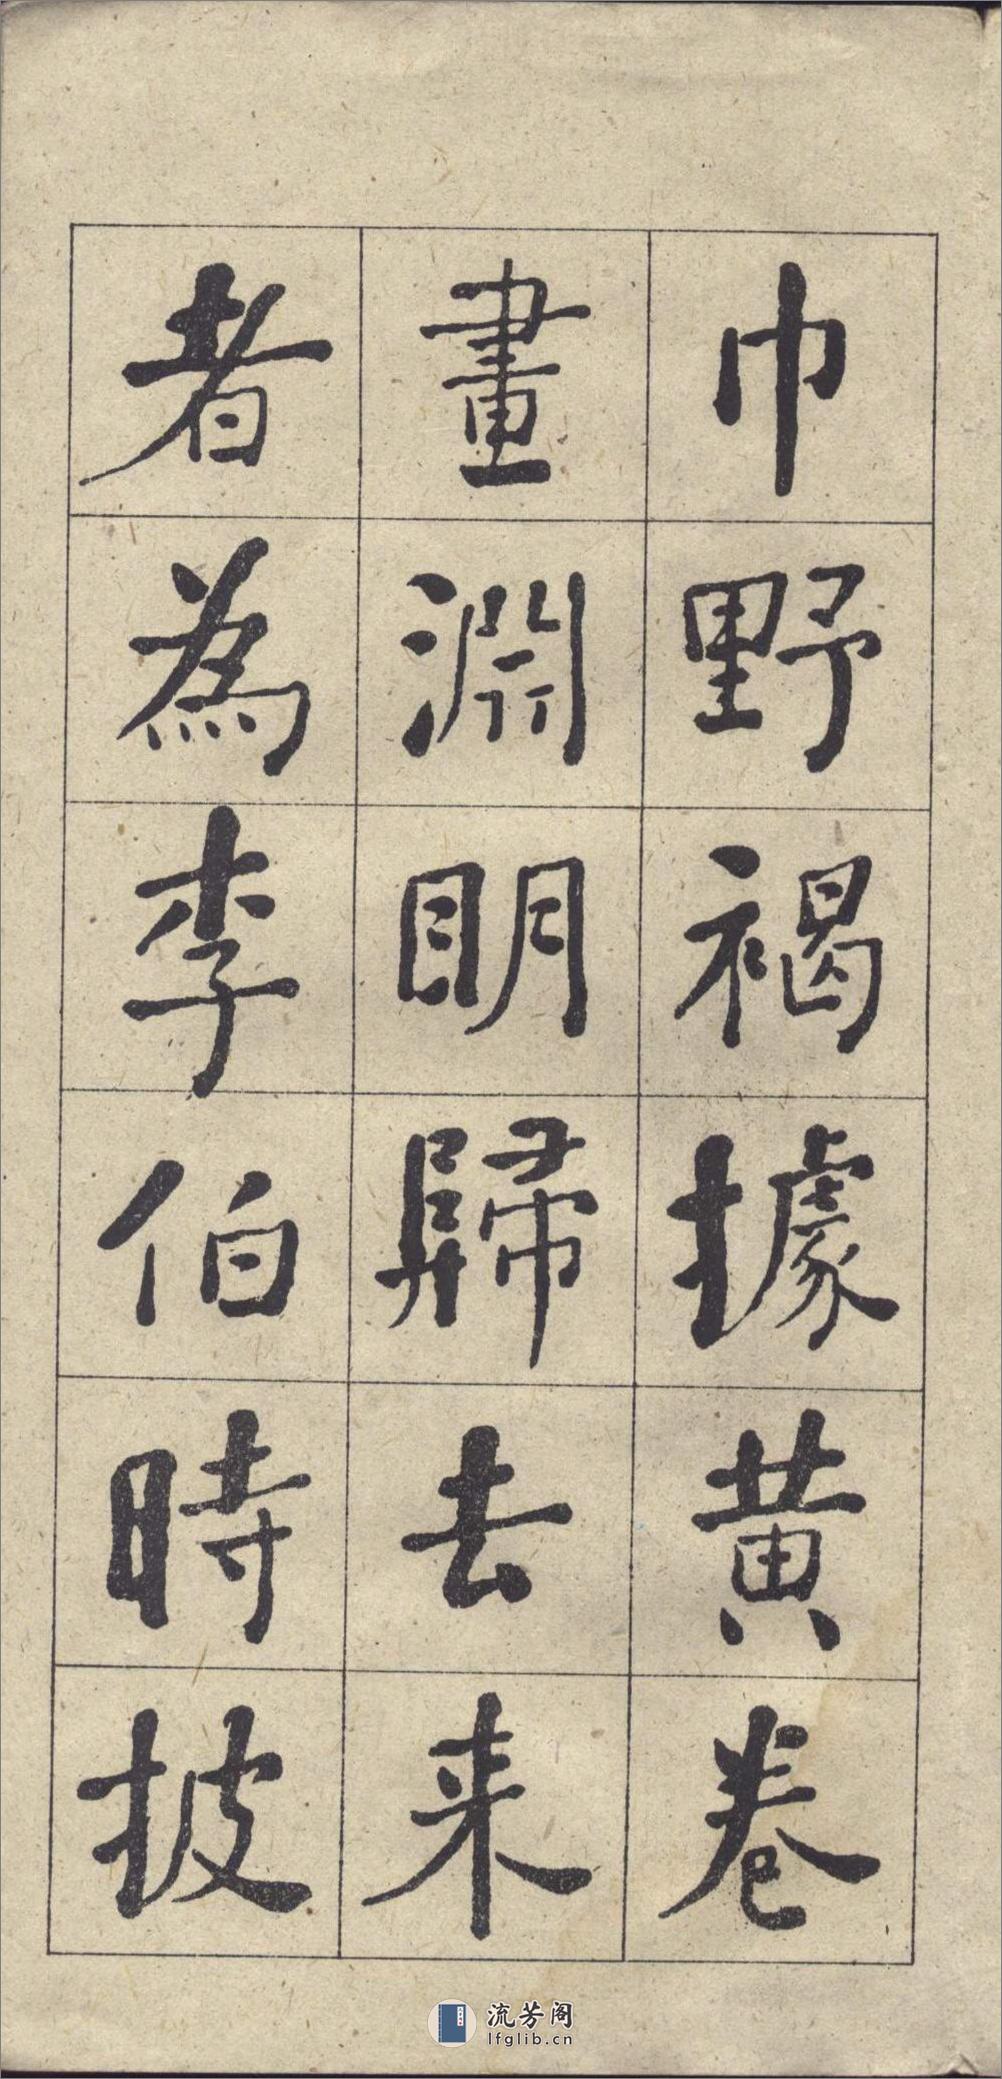 巾野褐據黄卷
畫淵明歸去来
者為李伯時披
流芳阁
lfglib.cn